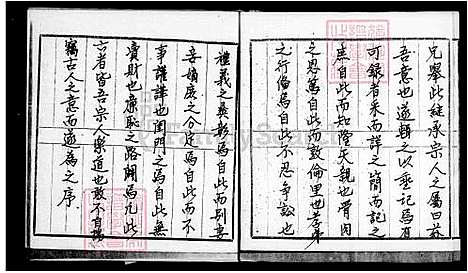 兄舉此繼承宗人之屬曰茲
吾意也遂輯之以垂記焉有
可錄者采而詳之簡而記之
庶自此而知隆矢親也骨肉
之恩篤自此而敦倫里也孝弟
之行脩焉自此不忍爭訟也
禮義之興彰焉自此而別妻
妾嫡庶之分定焉自此而不
事謹譁也閨門之焉自此無
瀆財也廉恥之路開焉凡此
言者皆吾宗人樂道也敢不自揚
竊古人之意而遂為之序
FamilySearch